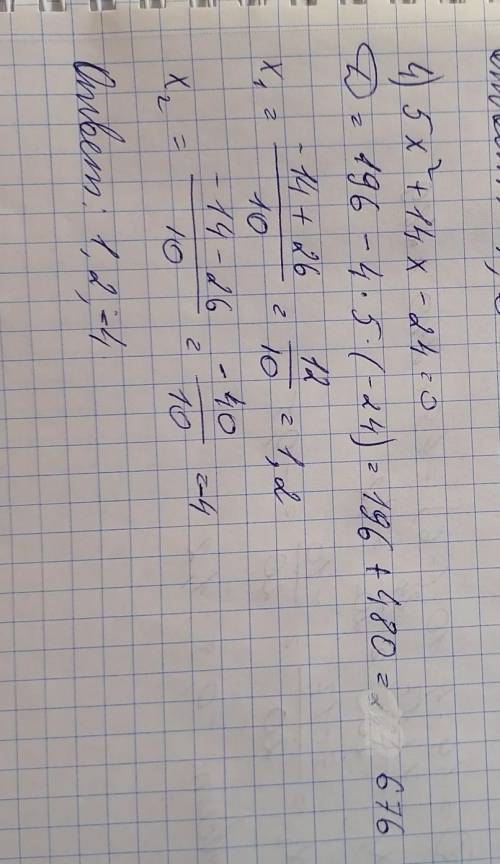 4) 5x² + 14x - 24 = 0
D = 196 - 4 · 5 · (-24) = 196 + 480 = 676
x₁ = (-14 + 26)/10 = 12/10 = 1,2
x₂ = (-14 - 26)/10 = -40/10 = -4
Ответ: 1,2; -4